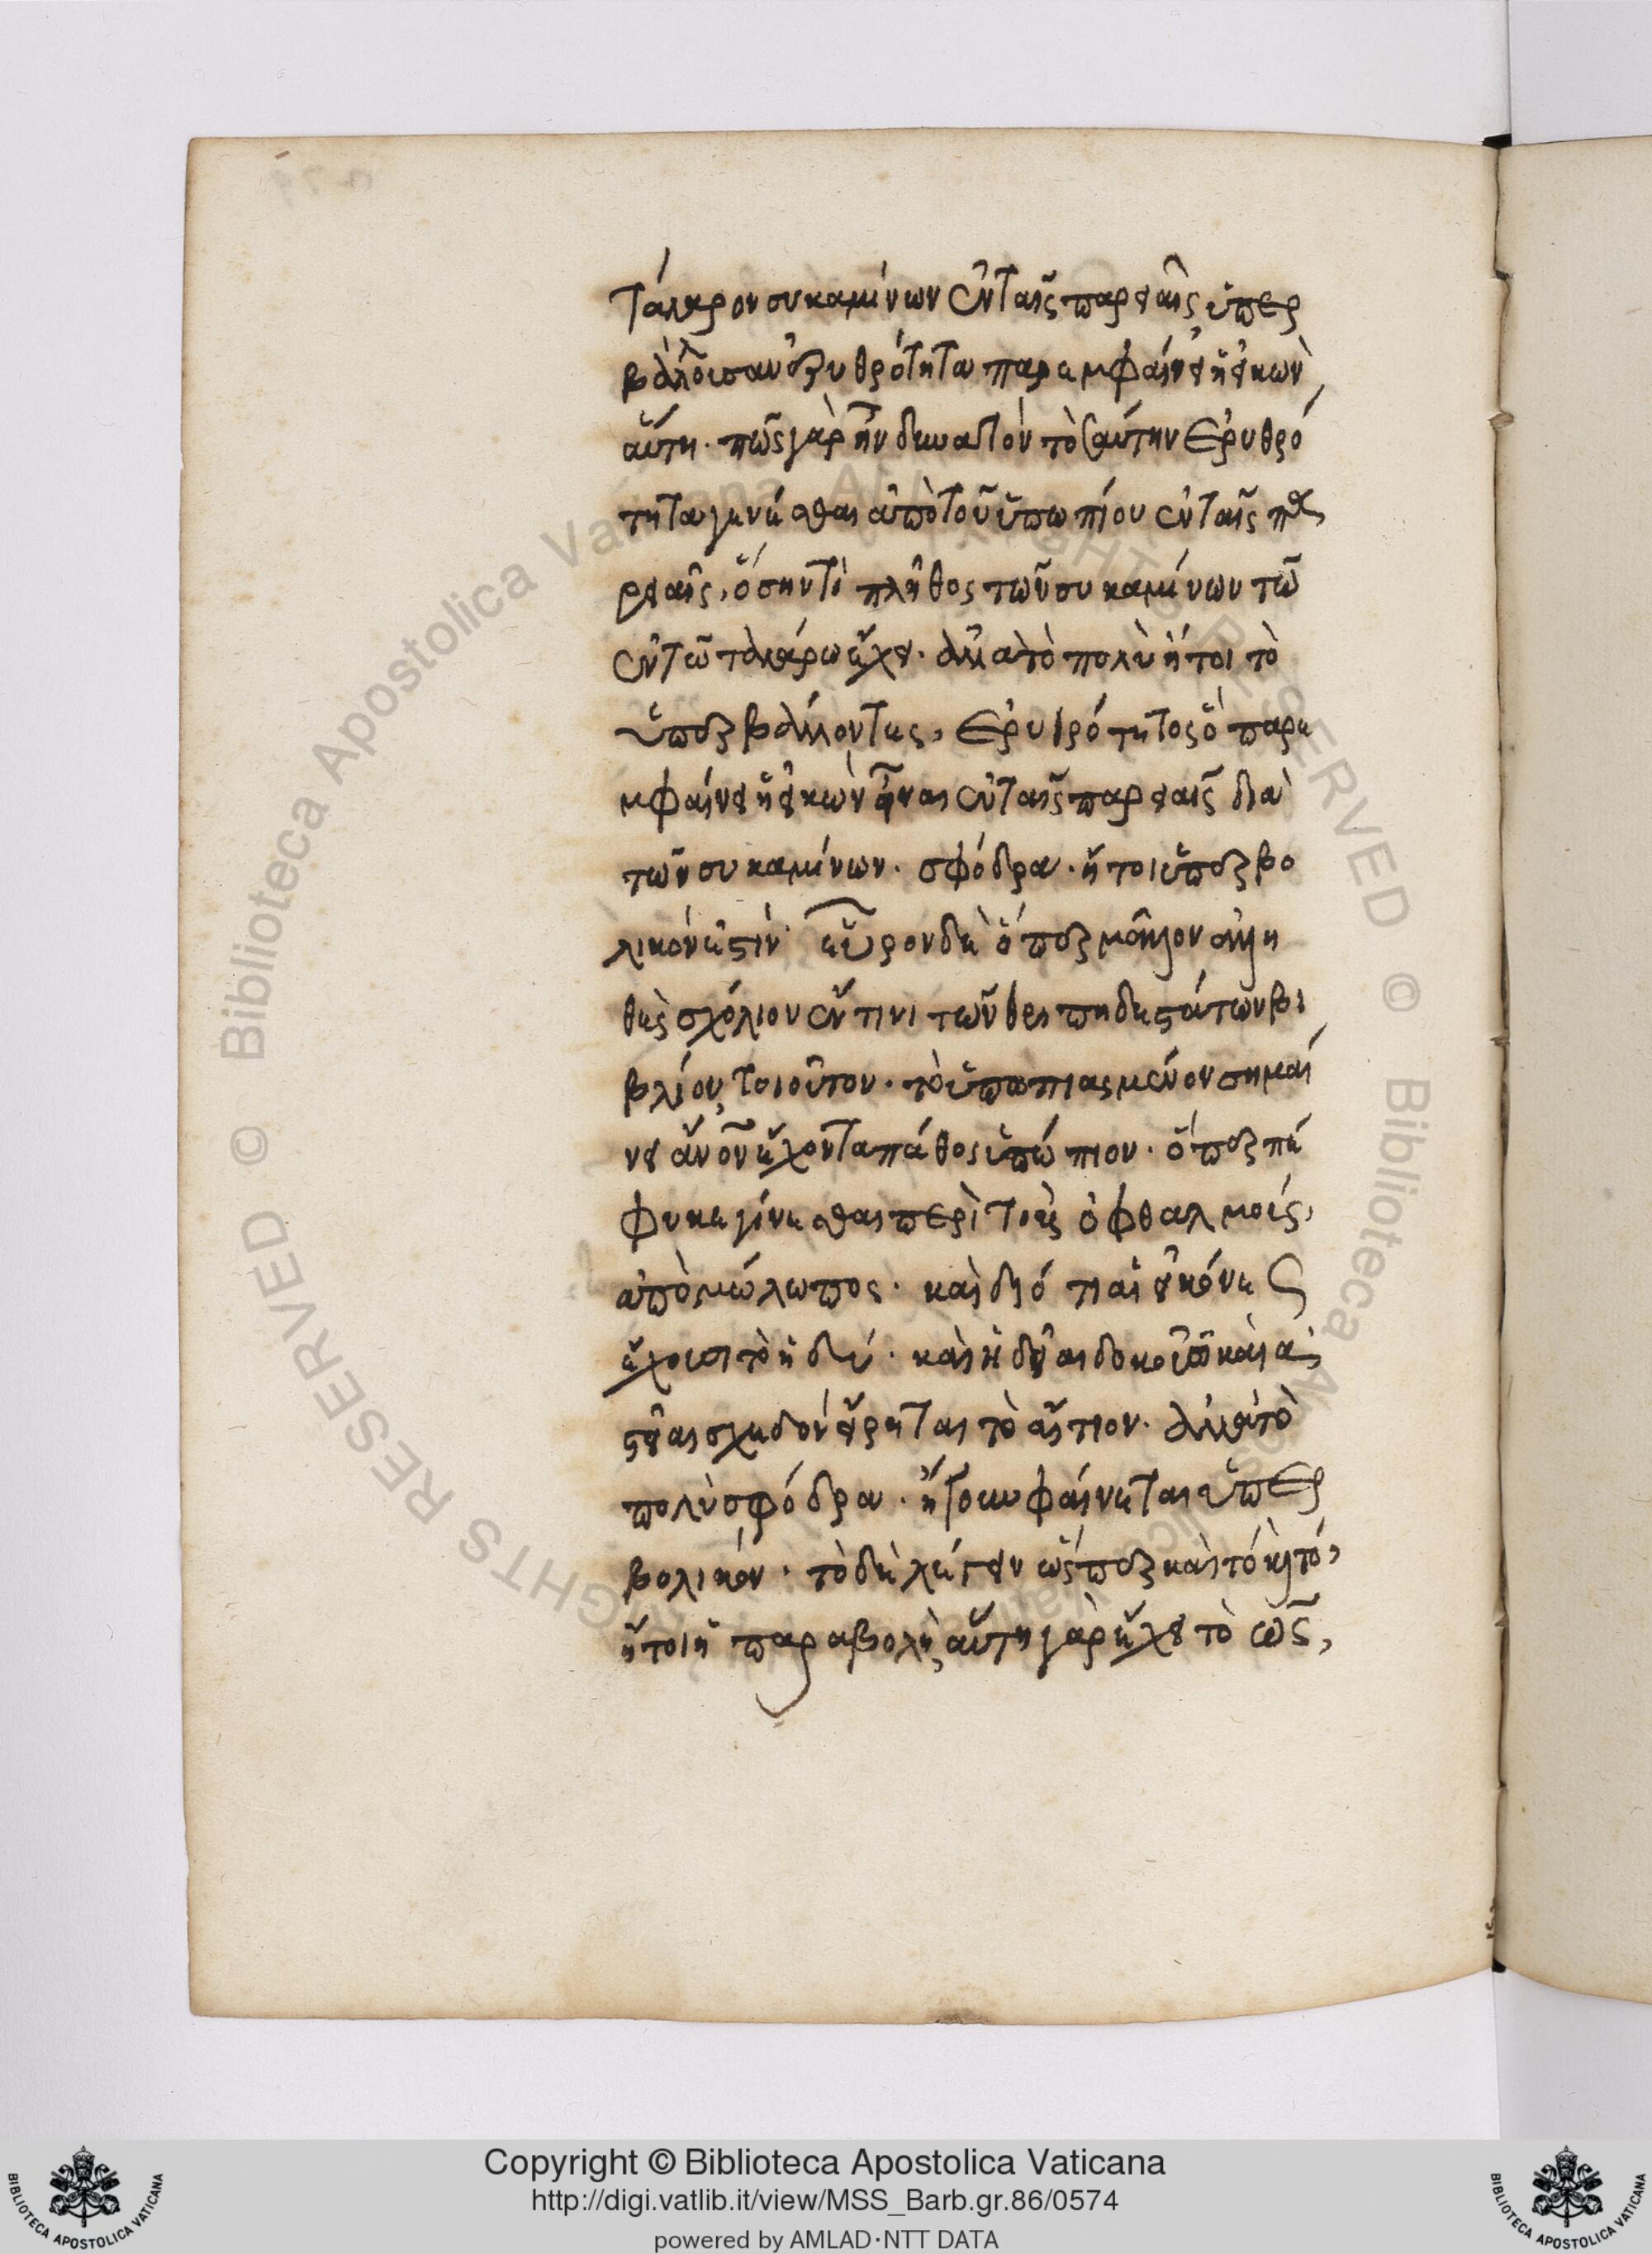 τάλαρον συκαμίνων ἐν ταῖς παρειαῖς ὑπερ
βάλλουσαν ἐρυθρότητα παρεμφαίνει ἡ εἰκὼν
αὕτη· πῶς γὰρ ἦν δυνατὸν τοσαύτην ἐρυθρό
τητα γενέσθαι ἀπὸ τοῦ ὑπωπίου ἐν ταῖς πα
ρειαῖς, ὅσην τὸ πλῆθος τῶν συκαμίνων τῶν
ἐν τῷ ταλάρῳ ἔχει· ἀλλὰ τὸ πολὺ ἤτοι τὸ
ὑπερβάλλον τῆς ἐρυθρότητος ὃ παρε
μφαίνει ἡ εἰκὼν εἶναι ἐν ταῖς παρειαῖς διὰ
τῶν συκαμίνων· σφόδρα· ἤτοι ὑπερβο
λικόν ἐστιν· εὗρον δὲ ὅπερ μᾶλλον ἀλη
θὲς σχόλιον ἔν τινι τῶν
βλίον τοιοῦτον· τὸ ὑπωπιασμένον σημαί
νει ἄνον ἔχοντα πάθος ὑπώπιον· ὅπερ πέ
φυκε γίνεσθαι περὶ τοῖς ὀφθαλμοῖς,
ἀπὸ μώλωπος· καὶ διό τι αἱ εἰκόνες
ἔχουσι τὸ ἡδύ· καὶ ἡδεῖαι δοκοῦσι καὶ ἀ
στεῖαι σχεδὸν εἴρηται τὸ αἴτιον· ἀλλὰ τὸ
πολὺ σφόδρα· ἤγουν φαίνεται ὑπερ
βολικόν· τὸ δὲ λέγειν ὥσπερ καὶ τὸ καὶ τὸ,
ἤτοι ἡ παραβολὴ, αὕτη γὰρ ἔχει τὸ ὡς,
Copyright © Biblioteca Apostolica Vaticana
http://digi.vatlib.it/view/MSS_Barb.gr.86/0574
powered by AMLAD·NTT DATA